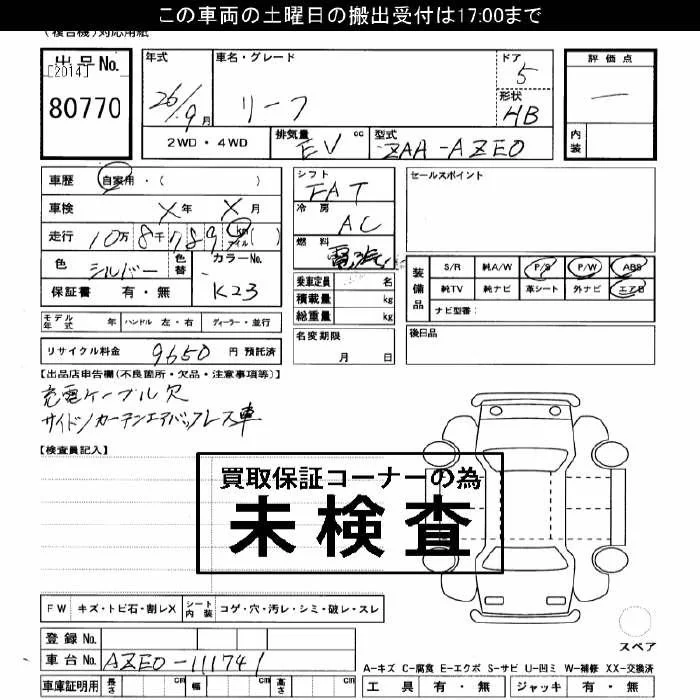 この車両の土曜日の搬出受付は17:00まで
(複合機)対応用紙
出品No.
[2014]
80770
年式
26/9月
車名・グレード
リーフ
ドア
5
形状
HB
評価点
―
内装
2WD・4WD
排気量 EV cc
型式 ZAA-AZE0
車歴 自家用・( )
車検 X年 X月
走行 10万8千789 km マイル ( )
色 シルバー 色替
カラーNo. K23
保証書 有・無
シフト
FAT
冷房
AC
燃料
電気
乗車定員 名
積載量 kg
総重量 kg
セールスポイント
装備品
S/R 純A/W P/S P/W ABS
純TV 純ナビ 革シート 外ナビ エアB
ナビ型番:
モデル年式 年 ハンドル 左・右 ディーラー・並行
名変期限
月 日
後日品
リサイクル料金 9650 円 預託済
【出品店申告欄(不良箇所・欠品・注意事項等)】
充電ケーブル欠
サイド/カーテンエアバックレス車
【検査員記入】
買取保証コーナーの為
未検査
FW キズ・トビ石・割レX シート内装 コゲ・穴・汚レ・シミ・破レ・スレ
スペア
登録No.
車台No. AZE0-111741
車庫証明用 長さ cm 幅 cm 高さ cm
A-キズ C-腐食 E-エクボ S-サビ U-凹ミ W-補修 XX-交換済
工具 有・無 ジャッキ 有・無